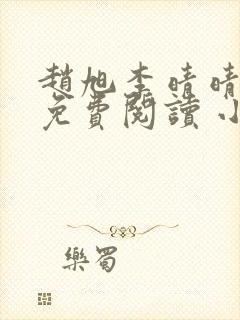 趙旭李晴晴
免費閱讀小
樂蜀